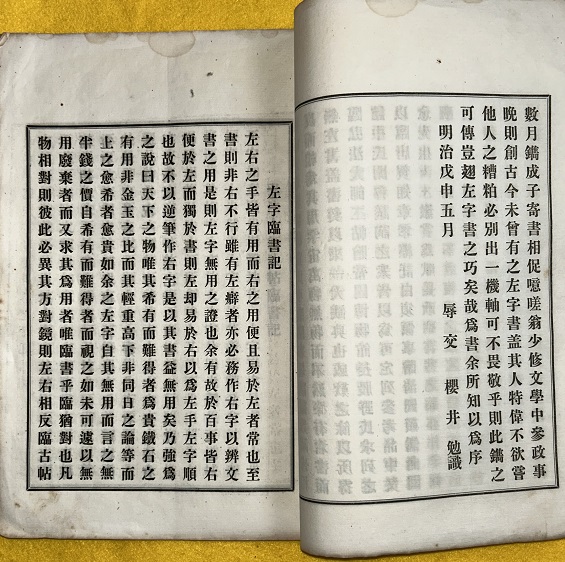 數月鐫成子寄書相促噫嗟翁少修文學中參政事
晩則創古今未曾有之左字書蓋其人特偉不欲嘗
他人之糟粕必別出一機軸可不畏敬乎則此鐫之
可傳豈翅左字書之巧矣哉爲書余所知以爲序
明治戊申五月
辱交 櫻井勉識
左字臨書記
左右之手皆有用而右之用便且易於左者常也至
書則非右不行雖有左癖者亦必務作右字以辨文
書之用是則左字無用之證也余有故於百事皆右
便於左而獨於書則左却易於右以爲左手左字順
也故不以逆筆作右字是以其書益無用矣乃強爲
之說曰天下之物唯其希有而難得者爲貴鐵石之
有用非金玉之比而其輕重高下非同日之論等而
上之愈希者愈貴如余之左字自其無用而言之無
半錢之價自希有而難得者而視之如未可遽以無
用廢棄者而又求其爲用者唯臨書乎臨猶對也凡
物相對則彼此必異其方對鏡則左右相反臨古帖